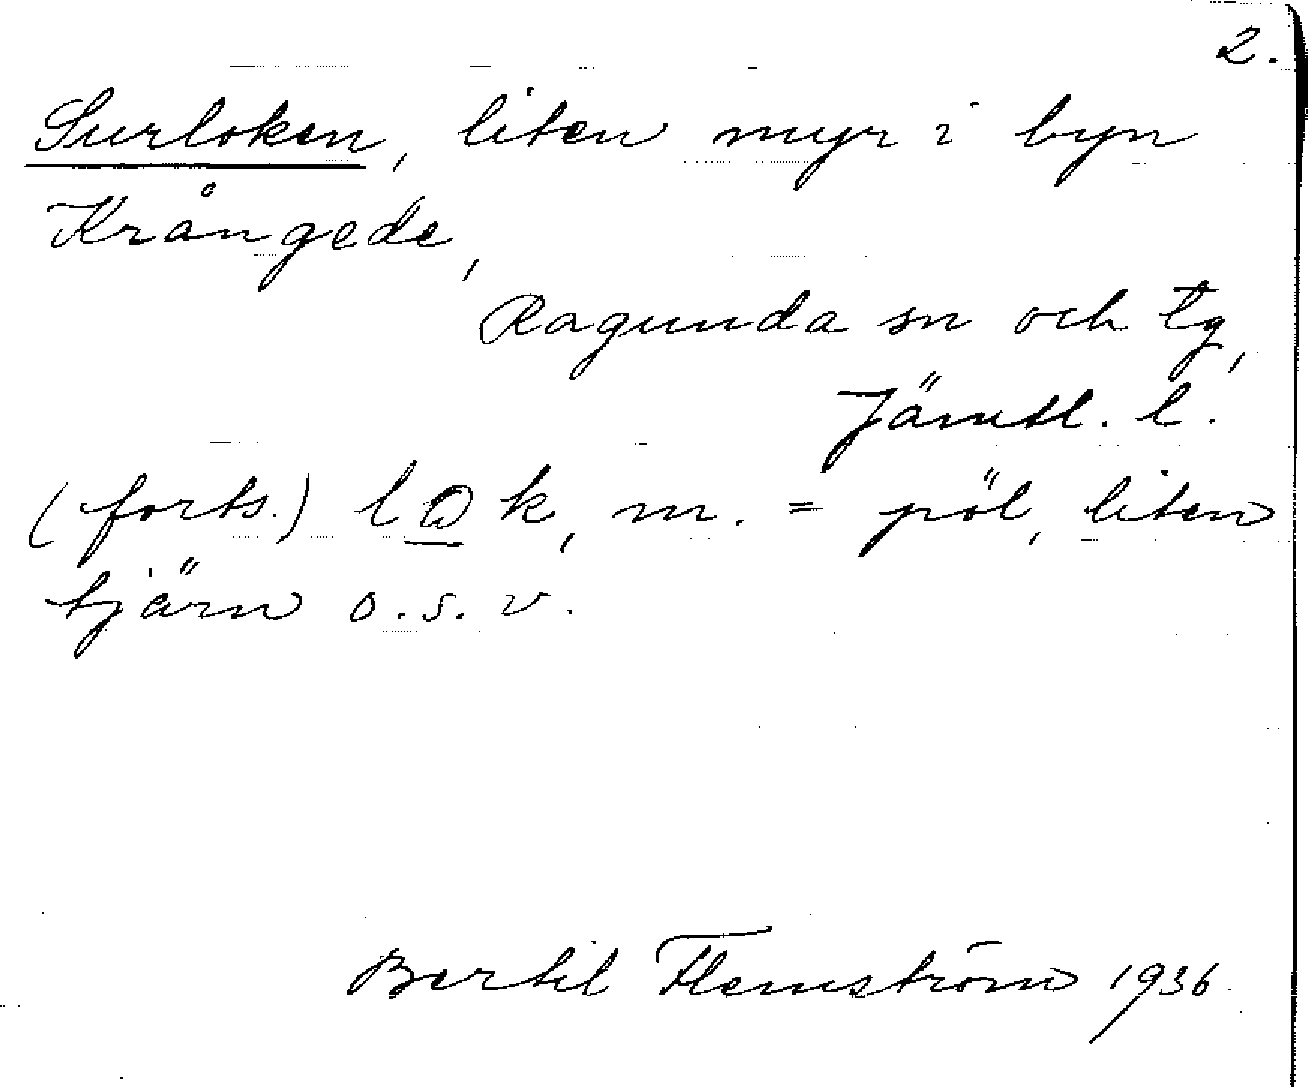 2.
Surloken, liten myr i byn
Krångede,
Ragunda sn och tg,
Jämtl. l.
(forts.) lo̲k, m. = pöl, liten
tjärn o.s.v.
Bertil Flemström 1936